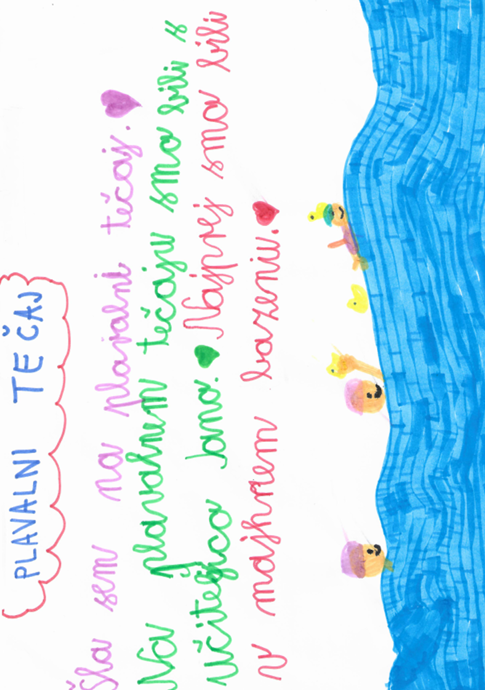 PLAVALNI TEČAJ
Šla sem na plavalni tečaj.
Na plavalnem tečaju smo bili s
učiteljico Jano. Najprej smo bili
v majhnem bazenu.